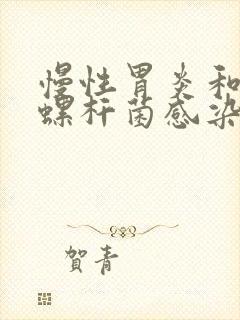 慢性胃炎和
螺杆菌感染
賀青